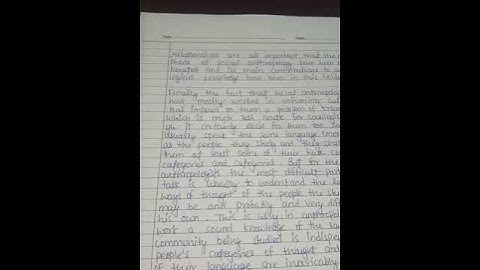 relationships are all important that the
of social anthropology have been
and its main contributions to
logical knowledge have been in this
Finally the fact that social anthropolog
have mostly worked in unfamiliar cul
had imposed on them a problem of
which is much less acute for sociologis
it certainly exist for them too
usually speak the same language
as the people they study and they sha
them at least some of their basic
categories and categories. But for the
anthropologist the most difficult part
task is usually to understand the la
ways of thought of the people the stu
may be and probably and very diff
his own. This is why in anthropol
work a sound knowledge of the lan
community being studied is indispe
people's categories of thought and
of their language are inextricably